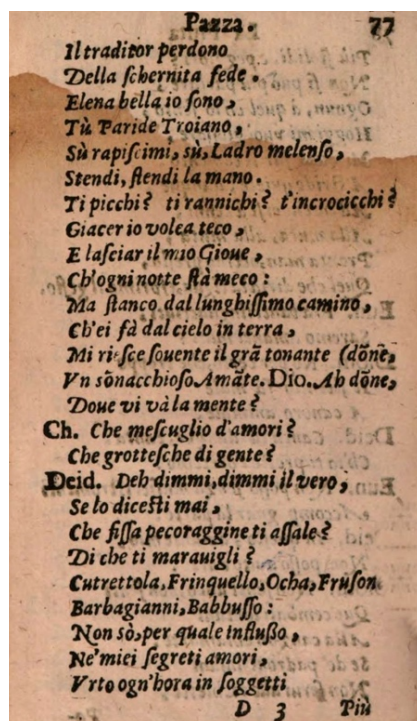 Pazza. 77
Il traditor perdono
Della ſchernita fede.
Elena bella io ſono,
Tù Paride Troiano,
Sù rapiſcimi, sù, Ladro melenſo,
Stendi, ſtendi la mano.
Ti picchi? ti rannichi? t'incrocicchi?
Giacer io volea teco,
E laſciar il mio Gioue,
Ch'ogni notte ſtà meco:
Ma ſtanco dal lunghiſſimo camino,
Ch'ei fà dal cielo in terra,
Mi rieſce ſouente il grã tonante (dõne,
Vn sõnacchioſo Amãte. Dio. Ah dõne,
Doue vi và la mente?
Ch. Che meſcuglio d'amori?
Che grotteſche di gente?
Deid. Deh dimmi, dimmi il vero,
Se lo diceſti mai,
Che fiſſa pecoraggine ti aſſale?
Di che ti marauigli?
Cutrettola, Frinquello, Ocha, Fruſon
Barbagianni, Babbuſſo:
Non sò, per quale influſſo,
Ne'miei ſegreti amori,
Vrto ogn'hora in ſoggetti
D 3 Più